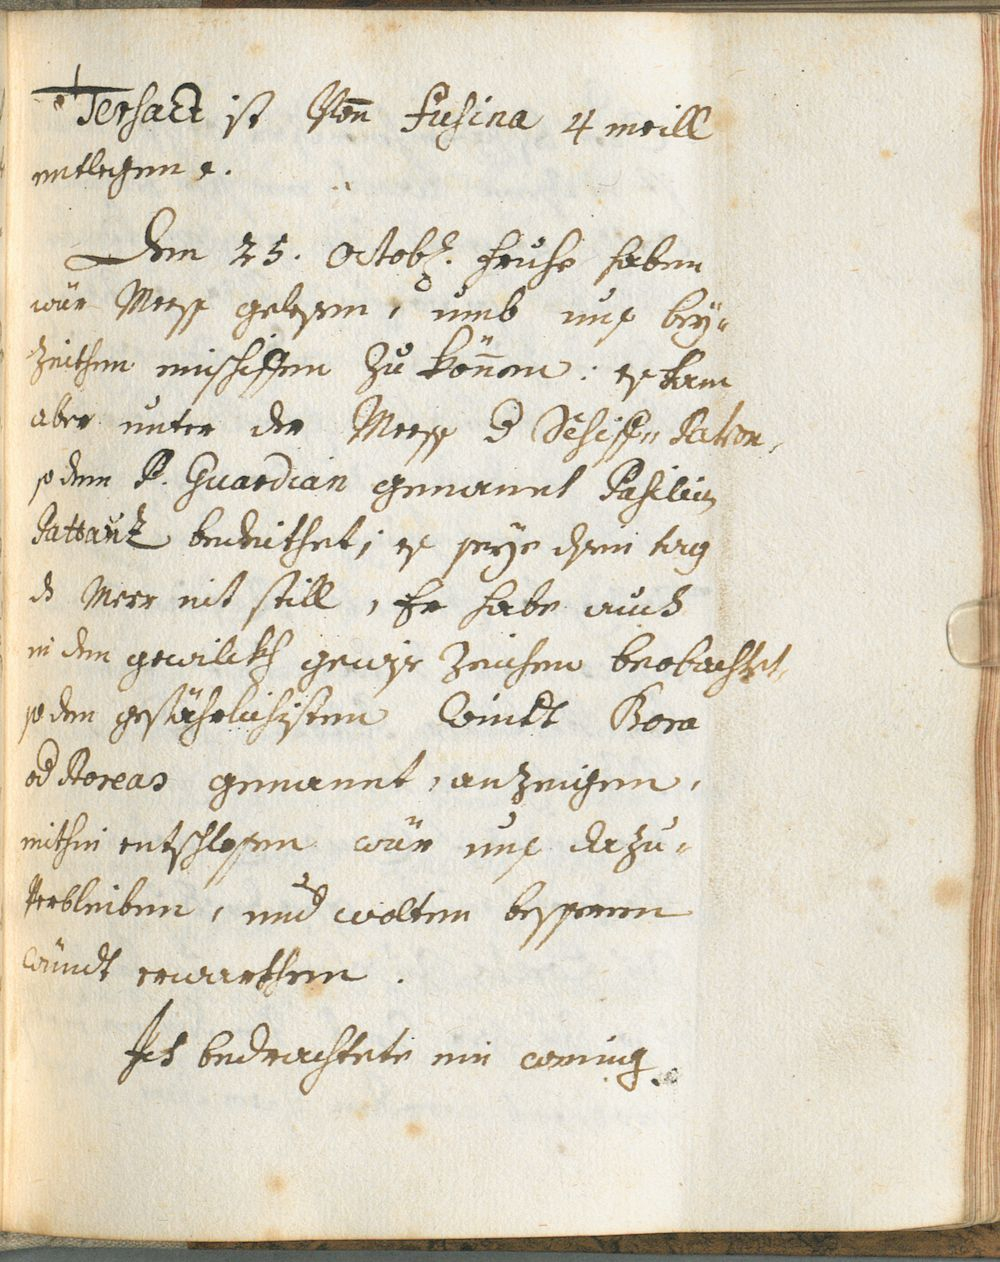 Tersact ist Von fusina 4 meill
entlegen e.
Den 25. Octobr. fruhe haben
wür Mess gelesen, umb unß bey-
Zeithen einschiffen Zu könnem: es kam
aber unter der Mess d Schiff- Patron,
so dem P. Guardian genanet Basilium
Pattaux bedeithet; es seye disen tag
ds Meer nit still, Er habe auch
in den gewilckh gewiss Zeichen beobachtet,
so den gefährlichisten Windt Bora
od Boreas genannt, anzeigen,
mithin entschlossen wür unß dazu-
Verbleiben, und wolten besseren
Windt erwarthen.
Ich bedrachtete ein wenig